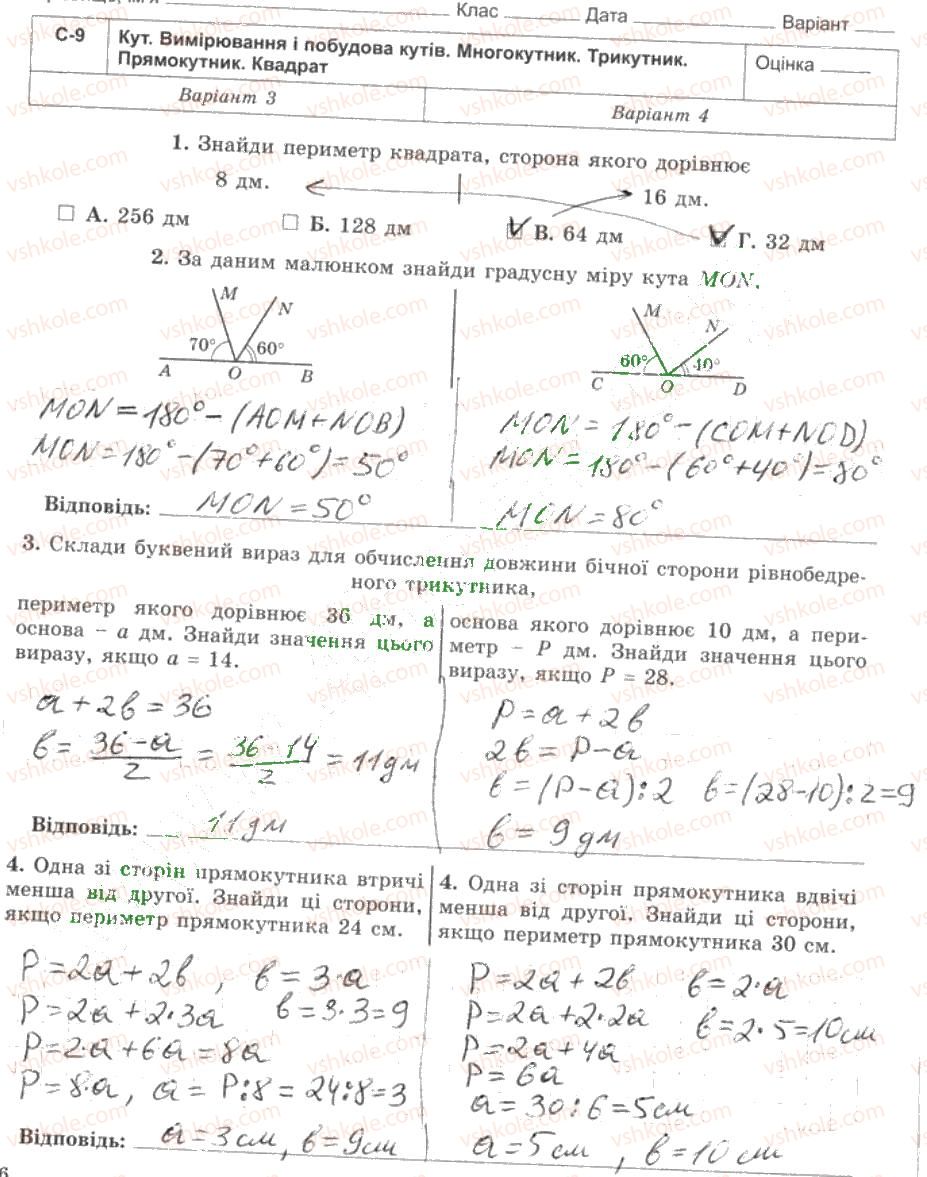 Клас ______ Дата ____________ Варіант ____
С-9
Кут. Вимірювання і побудова кутів. Многокутник. Трикутник.
Прямокутник. Квадрат
Оцінка _____
Варіант 3
Варіант 4
1. Знайди периметр квадрата, сторона якого дорівнює
8 дм.
16 дм.
А. 256 дм
Б. 128 дм
В. 64 дм
Г. 32 дм
2. За даним малюнком знайди градусну міру кута MON.
M
N
70°
60°
A
O
B
M
N
60°
40°
C
O
D
MON = 180° - (AOM + NOB)
MON = 180° - (70° + 60°) = 50°
Відповідь: MON = 50°
MON = 180° - (COM + NOD)
MON = 180° - (60° + 40°) = 80°
MON = 80°
3. Склади буквений вираз для обчислення довжини бічної сторони рівнобедре-
ного трикутника,
периметр якого дорівнює 36 дм, а
основа – a дм. Знайди значення цього
виразу, якщо a = 14.
a + 2в = 36
в = (36 - a)/2 = (36 - 14)/2 = 11 дм
Відповідь: 11 дм
основа якого дорівнює 10 дм, а пери-
метр – P дм. Знайди значення цього
виразу, якщо P = 28.
P = a + 2в
2в = P - a
в = (P - a) : 2 в = (28 - 10) : 2 = 9
в = 9 дм
4. Одна зі сторін прямокутника втричі
менша від другої. Знайди ці сторони,
якщо периметр прямокутника 24 см.
P = 2a + 2в, в = 3·a
P = 2a + 2·3a в = 3·3 = 9
P = 2·a + 6a = 8a
P = 8·a, a = P:8 = 24:8 = 3
Відповідь: a = 3 см, в = 9 см
4. Одна зі сторін прямокутника вдвічі
менша від другої. Знайди ці сторони,
якщо периметр прямокутника 30 см.
P = 2a + 2в в = 2·a
P = 2a + 2·2a в = 2·5 = 10 см
P = 2a + 4a
P = 6a
a = 30 : 6 = 5 см
a = 5 см, в = 10 см
6
vshkole.com